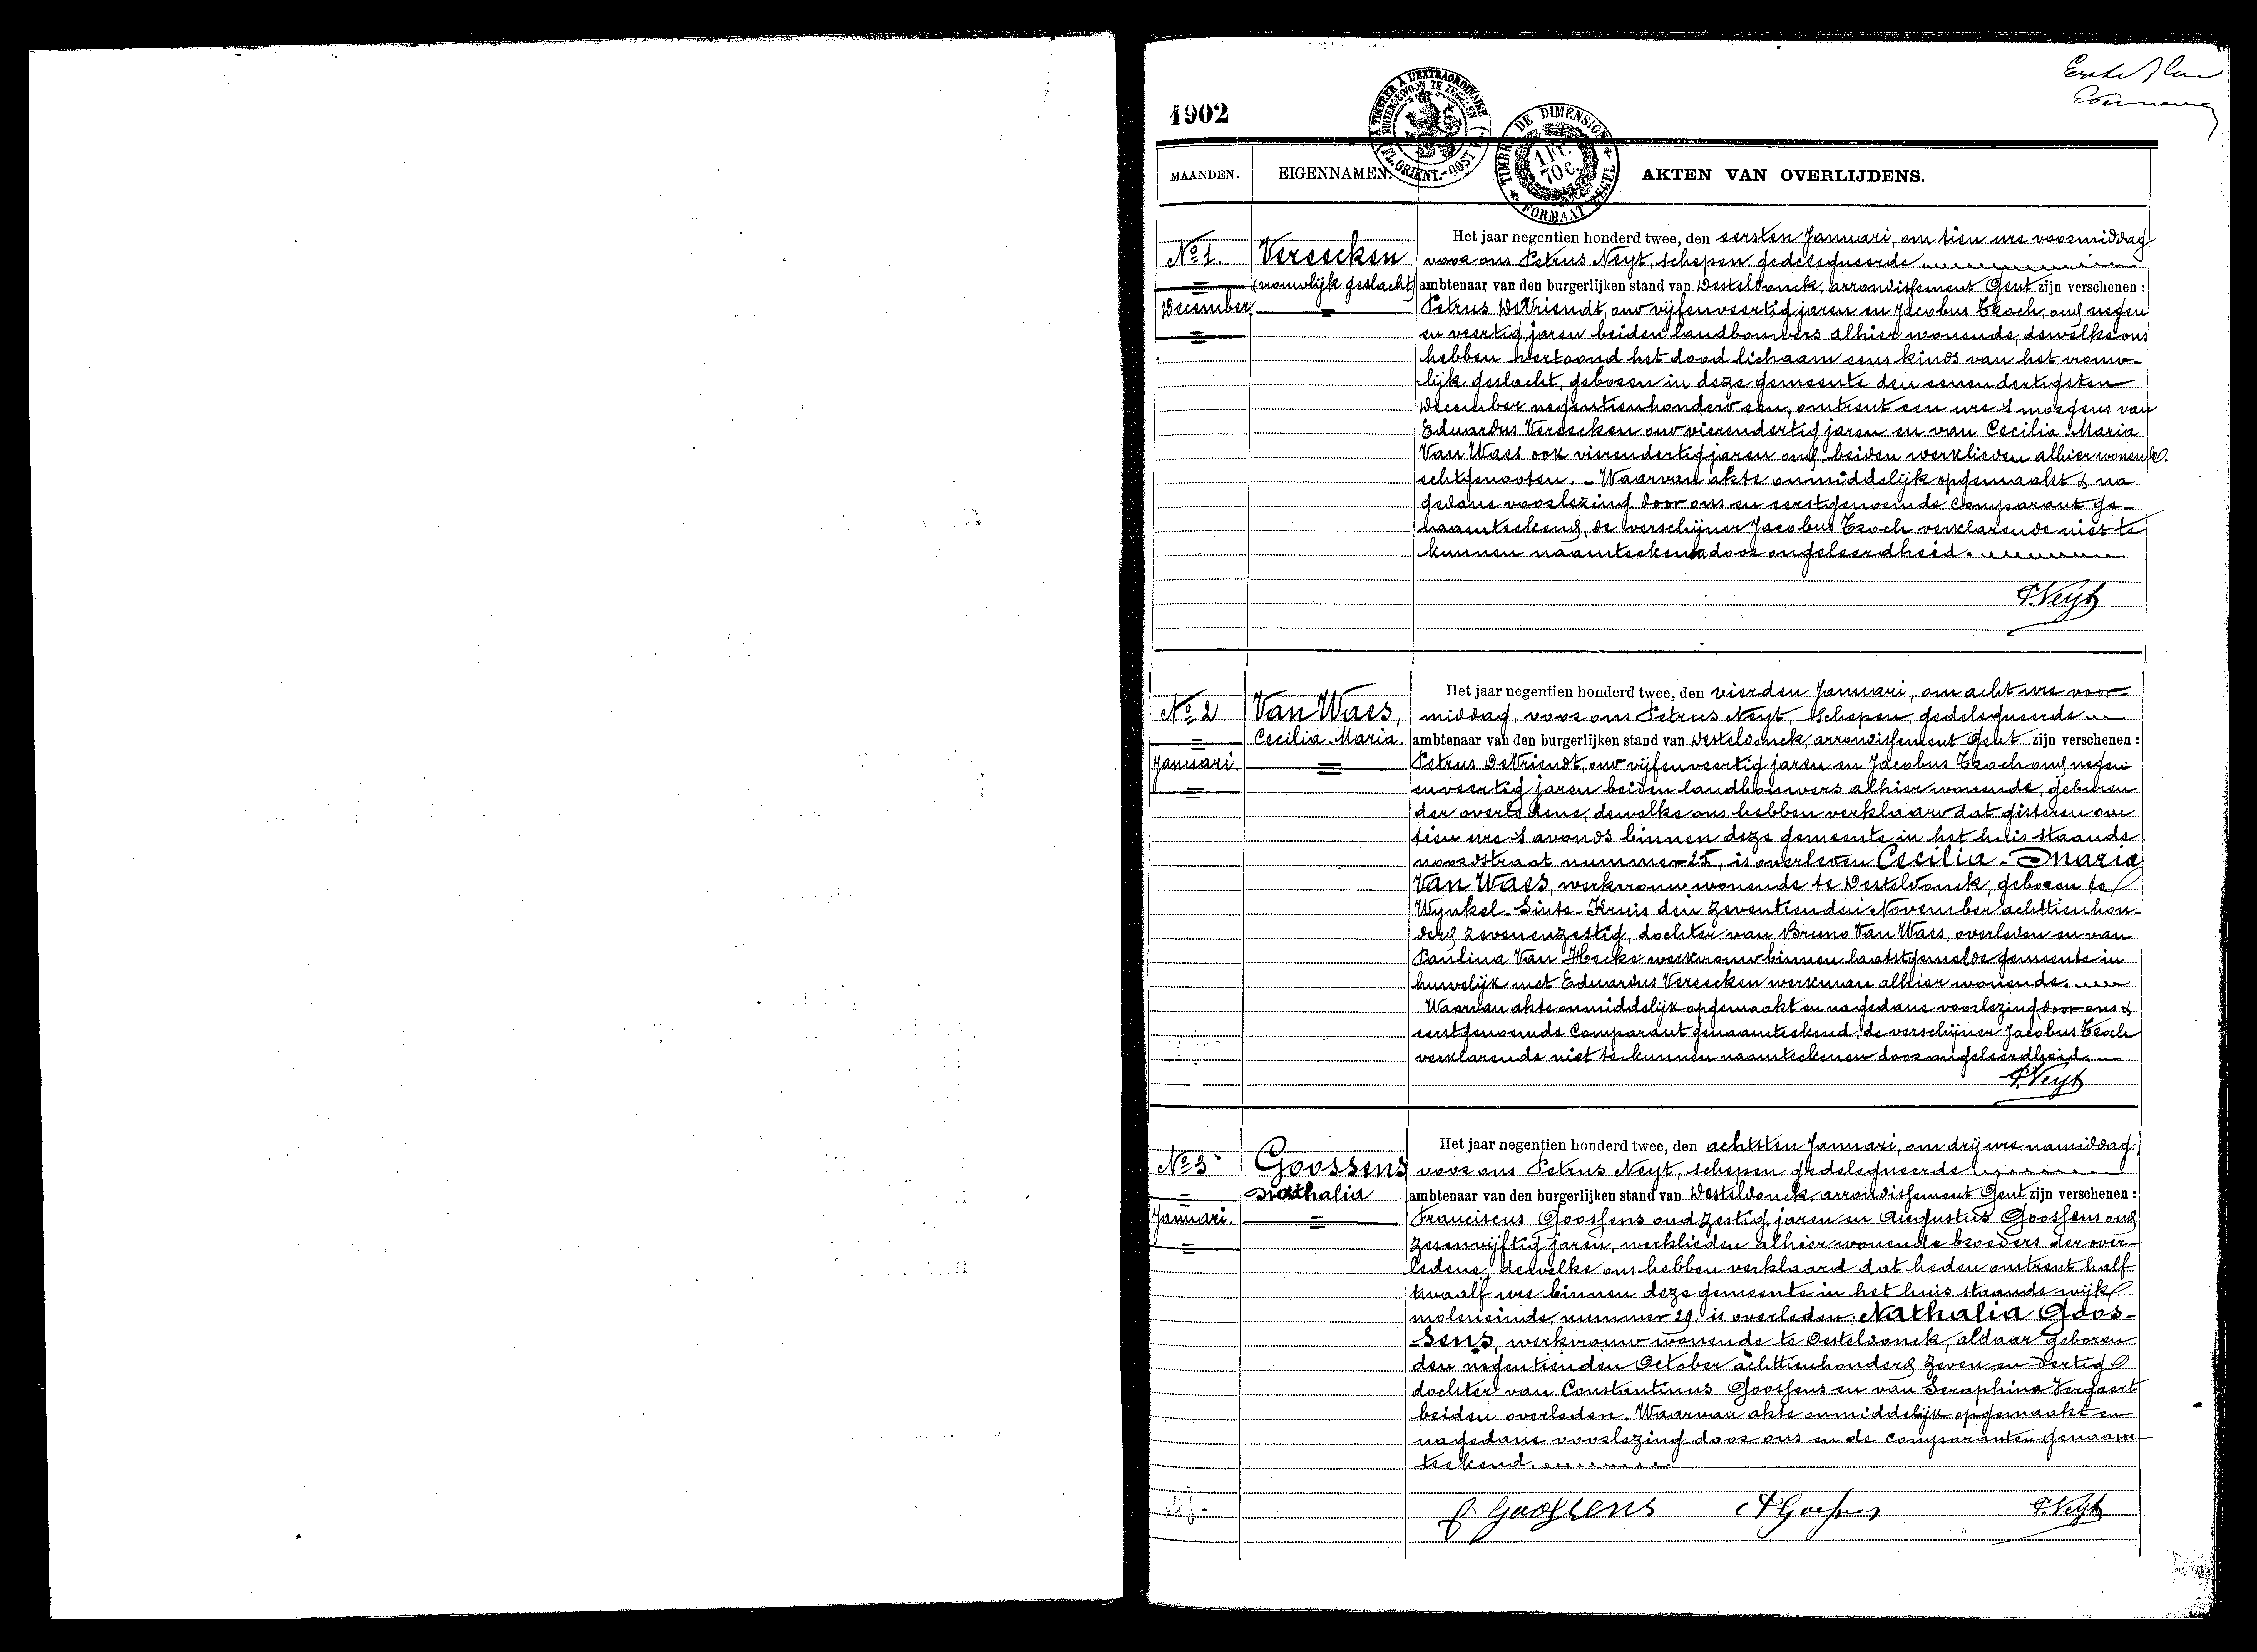 Eerste blad
1902
A TIMBRER A L'EXTRAORDINAIRE
BUITENGEWOON TE ZEGELEN
FL. ORIENT.-OOST
TIMBRE DE DIMENSION
1 Fr. 70 C.
FORMAAT ZEGEL
MAANDEN. EIGENNAMEN. AKTEN VAN OVERLIJDENS.
No 1.
December
Vereecken
(vrouwlijk geslacht)
Het jaar negentien honderd twee, den eersten Januari, om tien ure voormiddag
voor ons Petrus Neyt, schepen, gedelegueerde
ambtenaar van den burgerlijken stand van Desteldonck, arrondissement Gent zijn verschenen :
Petrus DeVriendt, oud vijfenveertig jaren en Jacobus Ekoch, oud negen
en veertig jaren beiden landbouwers alhier wonende, dewelke ons
hebben vertoond het dood lichaam eens kinds van het vrouw-
lijk geslacht, geboren in deze gemeente den eenendertigsten
December negentienhonderd een, omtrent een ure 's morgens van
Eduardus Vereecken oud vierendertig jaren en van Cecilia Maria
Van Waes ook vierendertig jaren oud, beiden werklieden alhier wonende.
echtgenooten. - Waarvan akte onmiddelijk opgemaakt & na
gedane voorlezing door ons en eerstgenoemde comparant ge-
naamteekend, de verschijner Jacobus Ekoch verklarende niet te
kunnen naamteekenen door ongeleerdheid.
P. Neyt
No 2
Januari
Van Waes,
Cecilia-Maria.
Het jaar negentien honderd twee, den vierden Januari, om acht ure voor-
middag, voor ons Petrus Neyt, Schepen, gedelegueerde
ambtenaar van den burgerlijken stand van Desteldonck, arrondissement Gent zijn verschenen :
Petrus DeVriendt, oud vijfenveertig jaren en Jacobus Ekoch oud negen
enveertig jaren beiden landbouwers alhier wonende, geburen
der overledene, dewelke ons hebben verklaard dat gisteren om
tien ure 's avonds binnen deze gemeente in het huis staande
noordstraat nummer 25, is overleden Cecilia-Maria
Van Waes, werkvrouw wonende te Desteldonck, geboren te
Wynkel-Sinte-Kruis den zeventienden November achttienhon-
derd zevenenzestig, dochter van Bruno Van Waes, overleden en van
Paulina Van Hecke werkvrouw binnen laatstgemelde gemeente in
huwelijk met Eduardus Vereecken werkman alhier wonende.
Waarvan akte onmiddelijk opgemaakt en nagedane voorlezing door ons &
eerstgenoemde Comparant genaamteekend, de verschijner Jacobus Ekoch
verklarende niet te kunnen naamteekenen door ongeleerdheid.
P. Neyt
No 3
Januari.
Goossens
Nathalia
Het jaar negentien honderd twee, den achtsten Januari, om drij ure namiddag
voor ons Petrus Neyt, schepen gedelegueerde
ambtenaar van den burgerlijken stand van Desteldonck, arrondissement Gent zijn verschenen :
Franciscus Goossens oud zestig jaren en Augustus Goossens oud
zesenvijftig jaren, werklieden alhier wonende broeders der over-
ledene, dewelke ons hebben verklaard dat heden omtrent half
twaalf ure binnen deze gemeente in het huis staande wijk
moleneinde nummer 29, is overleden: Nathalia Goos-
sens, werkvrouw wonende te Desteldonck, aldaar geboren
den negentienden October achttienhonderd zeven en dertig
dochter van Constantinus Goossens en van Seraphina Vergaert
beiden overleden. Waarvan akte onmiddelijk opgemaakt en
nagedane voorlezing door ons en de comparanten genaam-
teekend.
F. Goossens A Goossens P. Neyt